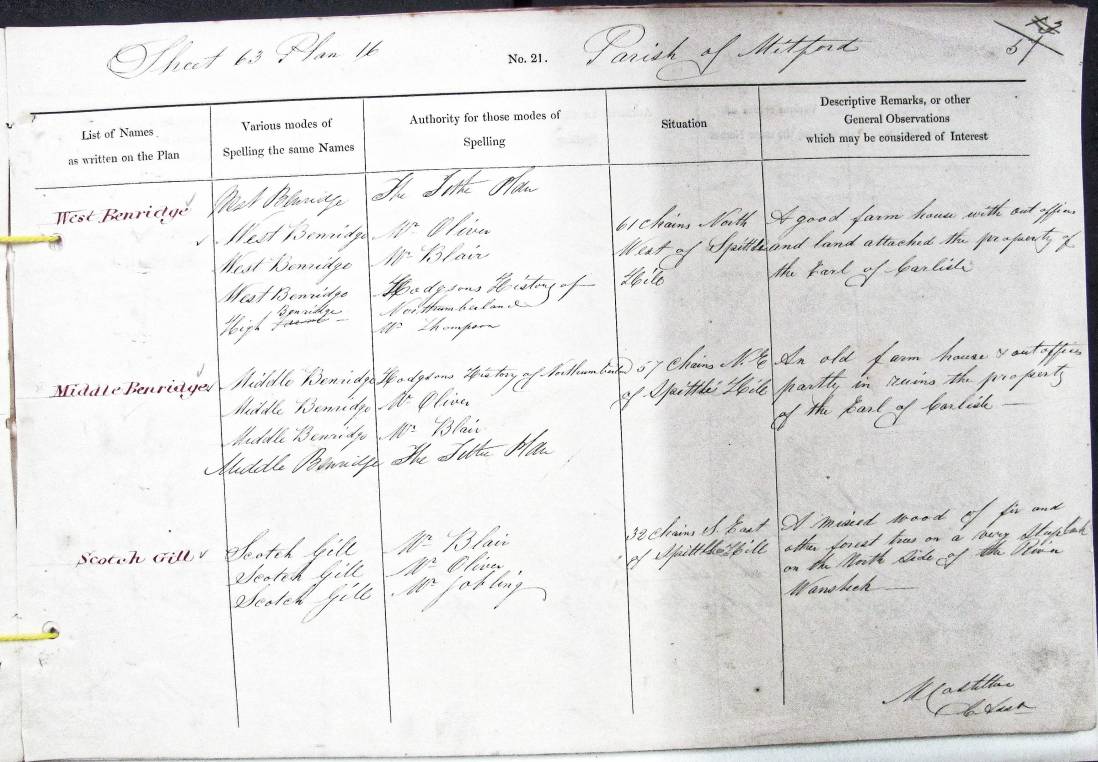 Sheet 63 Plan 16
No. 21.
Parish of Mitford
51
List of Names
as written on the Plan
Various modes of
Spelling the same Names
Authority for those modes of
Spelling
Situation
Descriptive Remarks, or other
General Observations
which may be considered of Interest
West Benridge
West Benridge
West Benridge
West Benridge
West Benridge
High Benridge
The Tithe Plan
Mr Oliver
Mr Blair
Hodgsons History of
Northumberland
Mr Thompson
61 Chains North
West of Spittle
Hill
A good farm house with out offices
and land attached the property of
the Earl of Carlisle
Middle Benridge
Middle Benridge
Middle Benridge
Middle Benridge
Middle Benridge
Hodgsons History of Northumberland
Mr Oliver
Mr Blair
The Tithe Plan
57 Chains N.E
of Spittle Hill
An old farm house & out offices
partly in ruins the property
of the Earl of Carlisle
Scotch Gill
Scotch Gill
Scotch Gill
Scotch Gill
Mr Blair
Mr Oliver
Mr Jobling
32 Chains S. East
of Spittle Hill
A mixed wood of fir and
other forest trees on a very steep bank
on the North Side of the River
Wansbeck